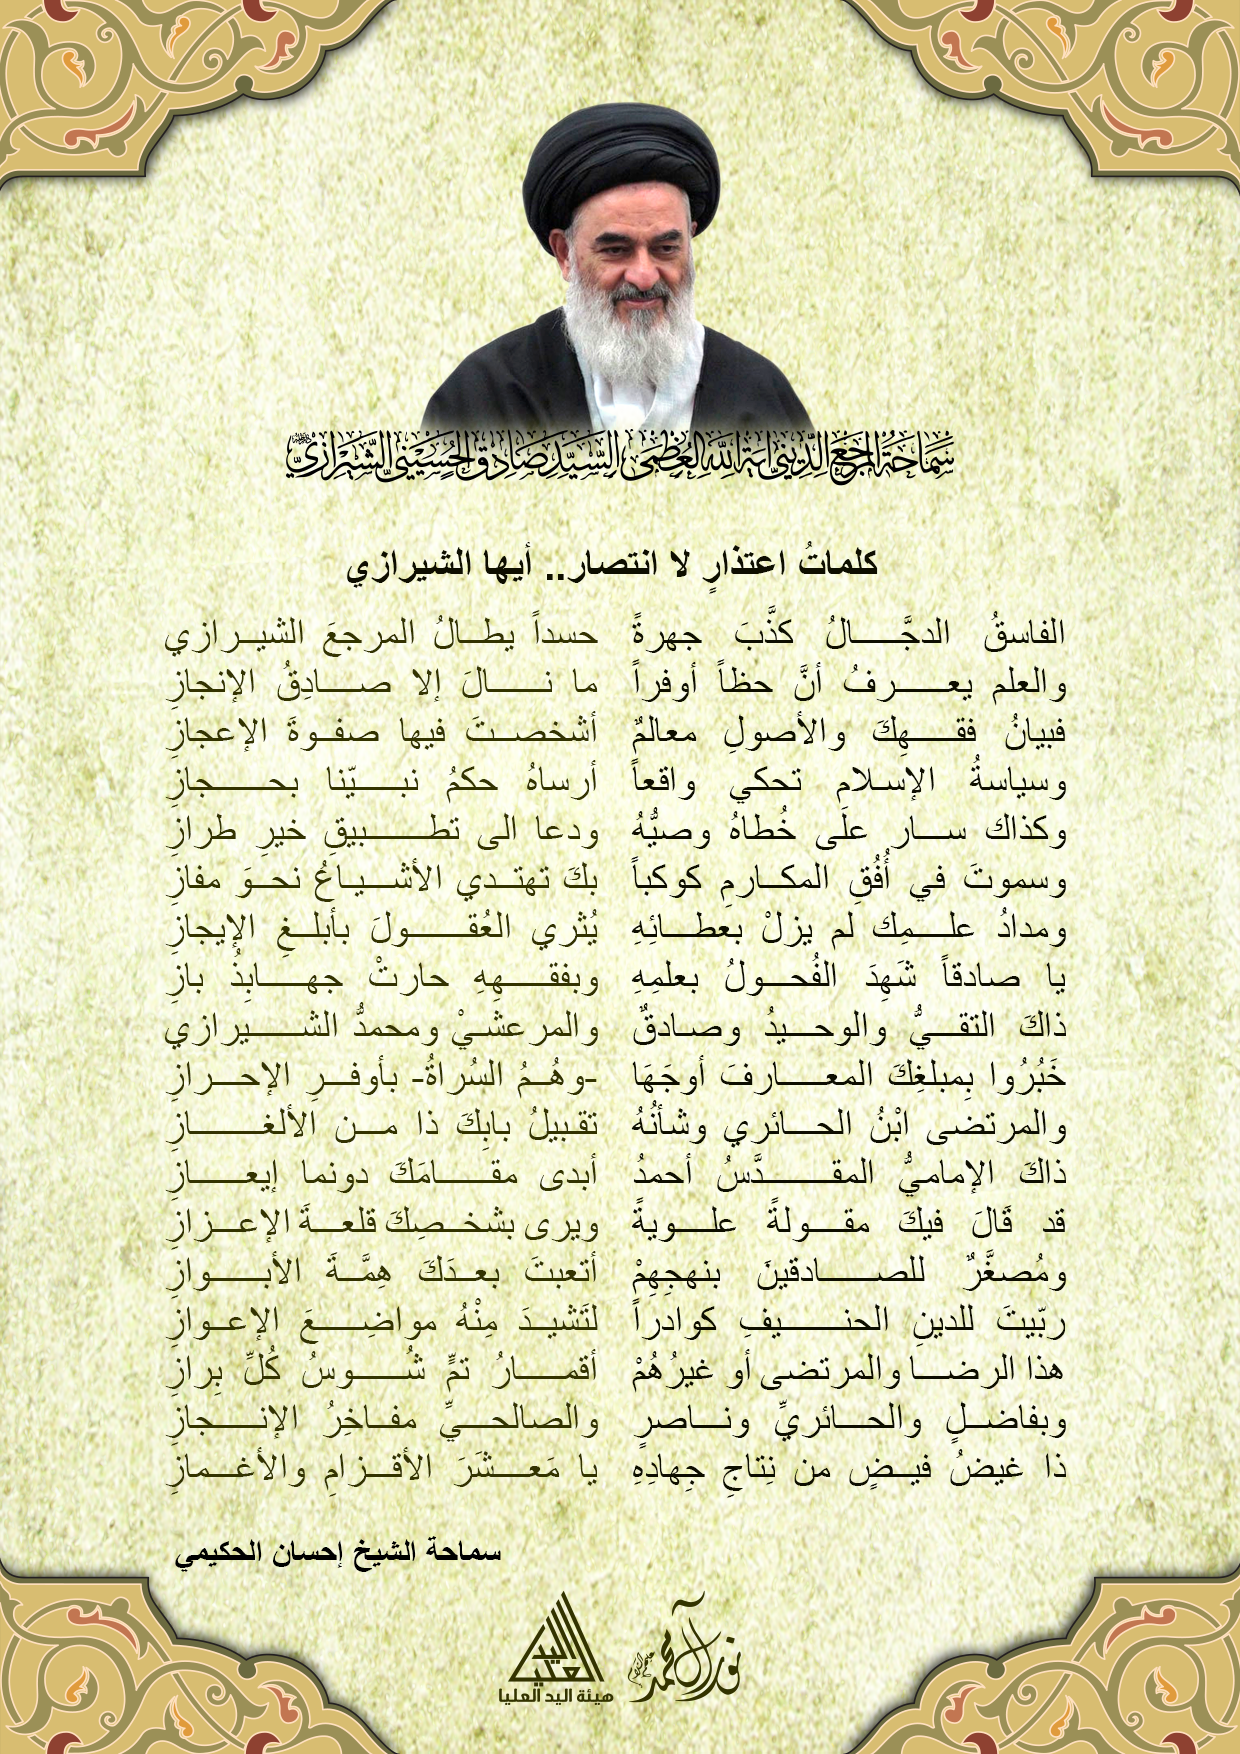 سَمَاحَةُ المَرجِعِ الدِّينِيِّ آيَةِ اللهِ العُظمَى السَّيِّدِ صَادِق الحُسَينِي الشِّيرَازِيّ
كلماتُ اعتذارٍ لا انتصار.. أيها الشيرازي
الفاسقُ الدجَّالُ كذَّبَ جهرةً حسداً يطالُ المرجعَ الشيرازي
والعلم يعرفُ أنَّ حظاً أوفراً ما نالَ إلا صادِقُ الإنجازِ
فبيانُ فقهِكَ والأصولِ معالمٌ أشخصتَ فيها صفوةَ الإعجازِ
وسياسةُ الإسلام تحكي واقعاً أرساهُ حكمُ نبيّنا بحجازِ
وكذاك سار علَى خُطاهُ وصيُّهُ ودعا الى تطبيقِ خيرِ طرازِ
وسموتَ في أُفُقِ المكارمِ كوكباً بكَ تهتدي الأشياعُ نحوَ مفازِ
ومدادُ علمِك لم يزلْ بعطائِهِ يُثري العُقولَ بأبلغِ الإيجازِ
يا صادقاً شَهِدَ الفُحولُ بعلمِهِ وبفقهِهِ حارتْ جهابِذُ بازِ
ذاكَ التقيُّ والوحيدُ وصادقٌ والمرعشيْ ومحمدُّ الشيرازي
خَبُرُوا بِمبلغِكَ المعارفَ أوجَهَا -وهُمُ السُراةُ- بأوفرِ الإحرازِ
والمرتضى ابْنُ الحائري وشأنُهُ تقبيلُ بابِكَ ذا من الألغازِ
ذاكَ الإماميُّ المقدَّسُ أحمدُ أبدى مقامَكَ دونما إيعازِ
قد قَالَ فيكَ مقولةً علويةً ويرى بشخصِكَ قلعةَ الإعزازِ
ومُصغَّرٌ للصادقينَ بنهجِهِمْ أتعبتَ بعدَكَ هِمَّةَ الأبوازِ
ربّيتَ للدينِ الحنيفِ كوادراً لتَشيدَ مِنْهُ مواضِعَ الإعوازِ
هذا الرضا والمرتضى أو غيرُهُمْ أقمارُ تمٍّ شُوسُ كُلِّ بِرازِ
وبفاضلٍ والحائريِّ وناصرٍ والصالحيِّ مفاخِرُ الإنجازِ
ذا غيضُ فيضٍ من نِتاجِ جِهادِهِ يا مَعشَرَ الأقزامِ والأغمازِ
سماحة الشيخ إحسان الحكيمي
نور آل محمد عليهم السلام
اليد العليا
هيئة اليد العليا